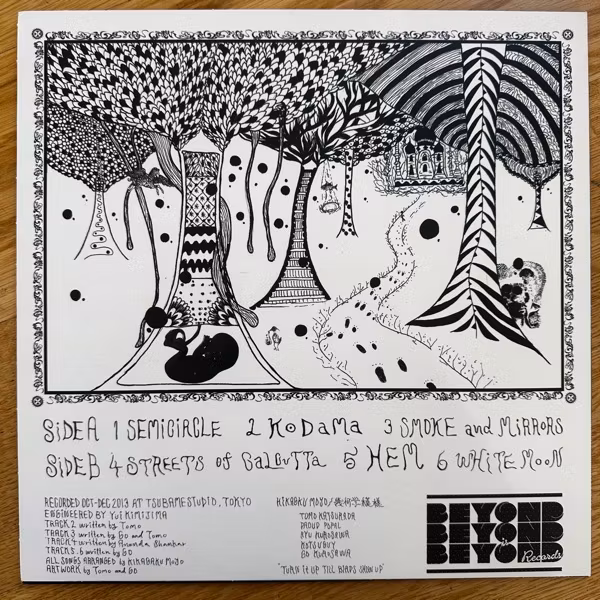 SiDE A 1 SEMiCiRCLE 2 KoDama 3 SMOKE and MiRRORS
SiDE B 4 STREETS of CaLCuTTa 5 HEM 6 WHiTE MooN
RECORDED OCT-DEC 2013 AT TSUBAMESTUDIO, TOKYO
ENGINEERED BY YUI KIMIJIMA
TRACK 2 written by Tomo
TRACK 3 written by Go and Tomo
TRACK 4 written by Ananda Shankar
TRACKS .6 written by GO
ALL SONGS ARRANGED by KIKAGAKU MOYO
ARTWORK by Tomo and GO
KIKAGAKU MOYO/幾何学模様
TOMO KATSURADA
DAOUD POPAL
RYU KUROSAWA
KOTSUGUY
GO KUROSAWA
"TURN IT UP TILL BIRDS SHOW UP"
BEYOND
BEYOND
is
BEYOND
Records